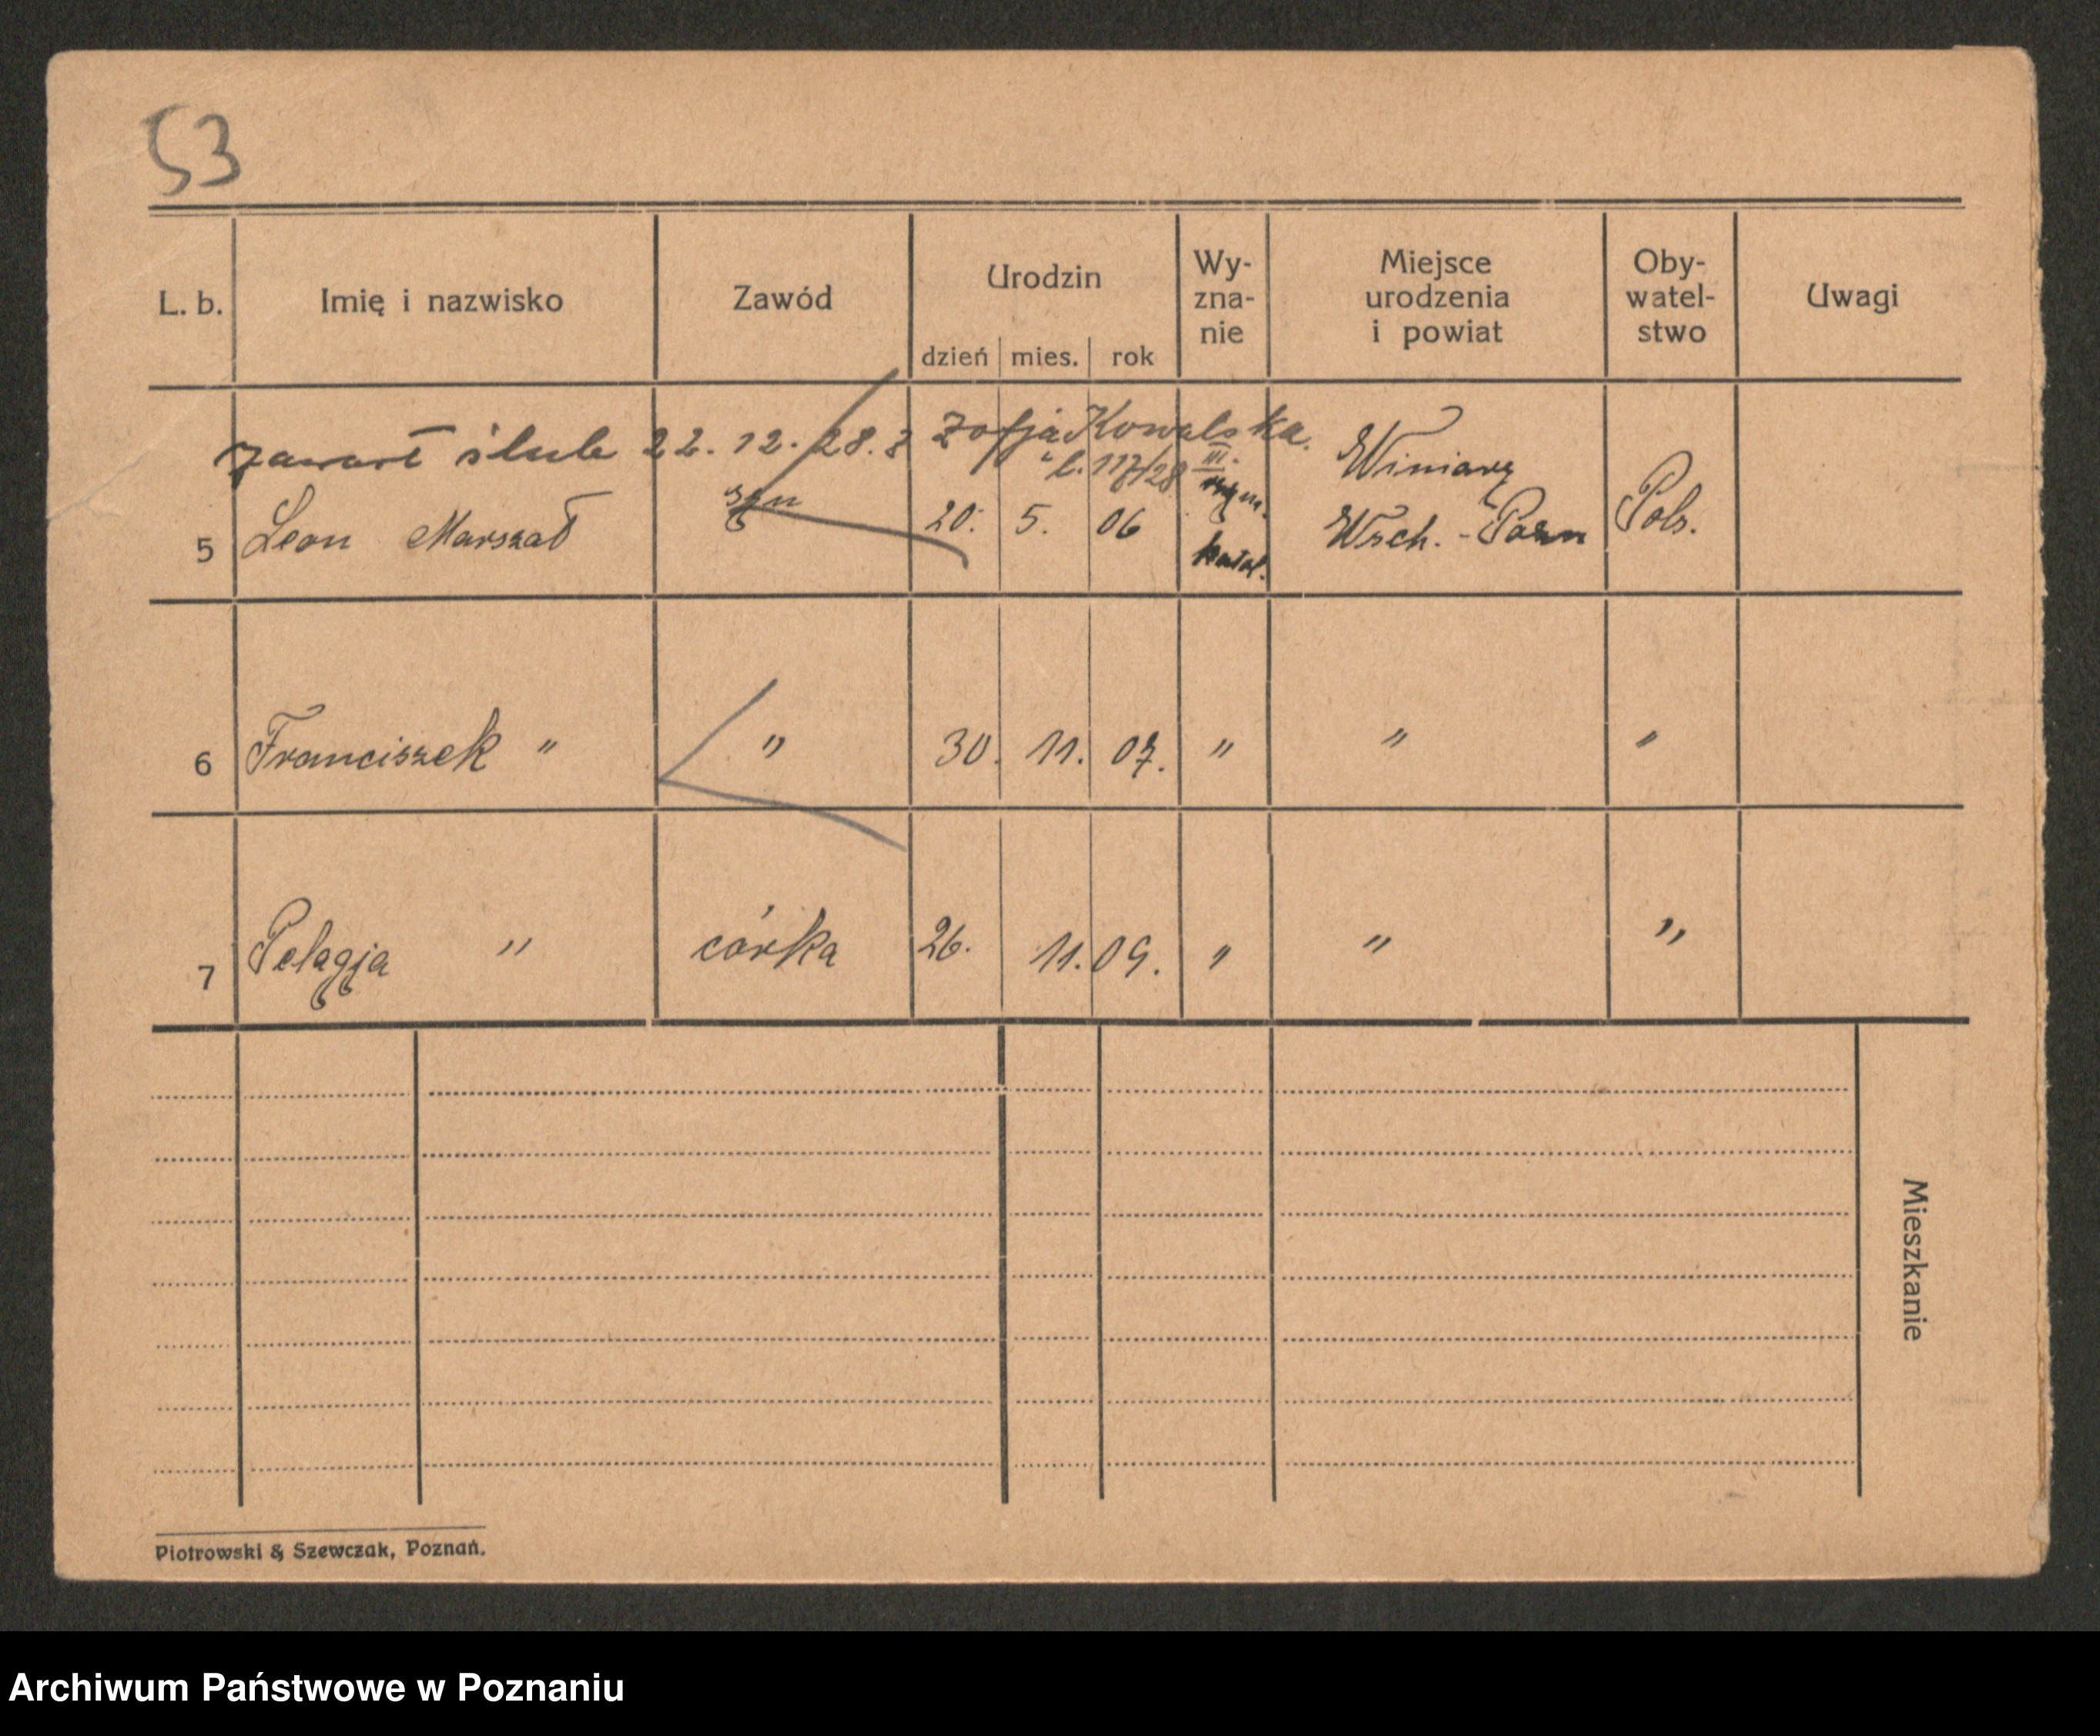 53
L. b. Imię i nazwisko Zawód Urodzin Wy- Miejsce Oby- Uwagi
zna- urodzenia watel-
nie i powiat stwo
dzień mies. rok
zawarł ślub 22. 12. 28. z Zofja Kowalska.
l. 117/28 III. Winiary
5 Leon Marszał syn 20. 5. 06 rzym. katol. Wsch. - Pozn Pols.
6 Franciszek " " 30. 11. 07. " " "
7 Pelagja " córka 26. 11. 09. " " "
Mieszkanie
Piotrowski & Szewczak, Poznań.
Archiwum Państwowe w Poznaniu